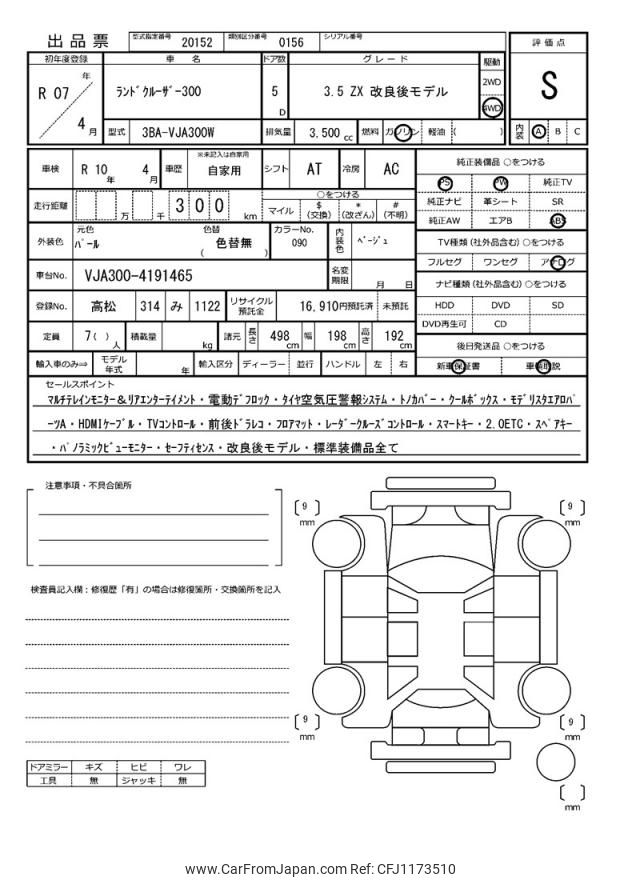 出品票 型式指定番号 20152 類別区分番号 0156 シリアル番号
評価点
S
初年度登録 車名 ドア数 グレード 駆動
R 07 年 4 月
ﾗﾝﾄﾞｸﾙｰｻﾞｰ-300 5 D 3.5 ZX 改良後モデル 2WD 4WD
型式 3BA-VJA300W 排気量 3,500 cc 燃料 ガソリン 軽油 ( )
内装 A B C
車検 R 10 年 4 月 車歴 ※未記入は自家用 自家用 シフト AT 冷房 AC
純正装備品 ○をつける
PS PW 純正TV
純正ナビ 革シート SR
純正AW エアB ABS
走行距離 万 千 3 0 0 km
○をつける
マイル $ (交換) * (改ざん) # (不明)
外装色 元色 ﾊﾟｰﾙ 色替 色替無 ( ) カラーNo. 090 内装色 ﾍﾞｰｼﾞｭ
TV種類 (社外品含む) ○をつける
フルセグ ワンセグ アナログ
車台No. VJA300-4191465 名変期限 月 日
ナビ種類 (社外品含む) ○をつける
HDD DVD SD
DVD再生可 CD
登録No. 高松 314 み 1122 リサイクル預託金 16,910円預託済 未預託
定員 7( ) 人 積載量 kg 諸元 長さ 498 cm 幅 198 cm 高さ 192 cm
後日発送品 ○をつける
新車保証書 車輌取説
輸入車のみ⇒ モデル年式 年 輸入区分 ディーラー 並行 ハンドル 左 右
セールスポイント
ﾏﾙﾁﾃﾚｲﾝﾓﾆﾀｰ＆ﾘｱｴﾝﾀｰﾃｲﾒﾝﾄ・電動ﾃﾞﾌﾛｯｸ・ﾀｲﾔ空気圧警報ｼｽﾃﾑ・ﾄﾉｶﾊﾞｰ・ｸｰﾙﾎﾞｯｸｽ・ﾓﾃﾞﾘｽﾀｴｱﾛﾊﾟ
ｰﾂA・HDMIｹｰﾌﾞﾙ・TVｺﾝﾄﾛｰﾙ・前後ﾄﾞﾗﾚｺ・ﾌﾛｱﾏｯﾄ・ﾚｰﾀﾞｰｸﾙｰｽﾞｺﾝﾄﾛｰﾙ・ｽﾏｰﾄｷｰ・2.0ETC・ｽﾍﾟｱｷｰ
・ﾊﾟﾉﾗﾐｯｸﾋﾞｭｰﾓﾆﾀｰ・ｾｰﾌﾃｨｾﾝｽ・改良後モデル・標準装備品全て
注意事項・不具合箇所
検査員記入欄：修復歴「有」の場合は修復箇所・交換箇所を記入
〔 9 〕 mm
〔 9 〕 mm
〔 9 〕 mm
〔 9 〕 mm
〔 〕 mm
ドアミラー キズ ヒビ ワレ
工具 無 ジャッキ 無
www.CarFromJapan.com Ref: CFJ1173510